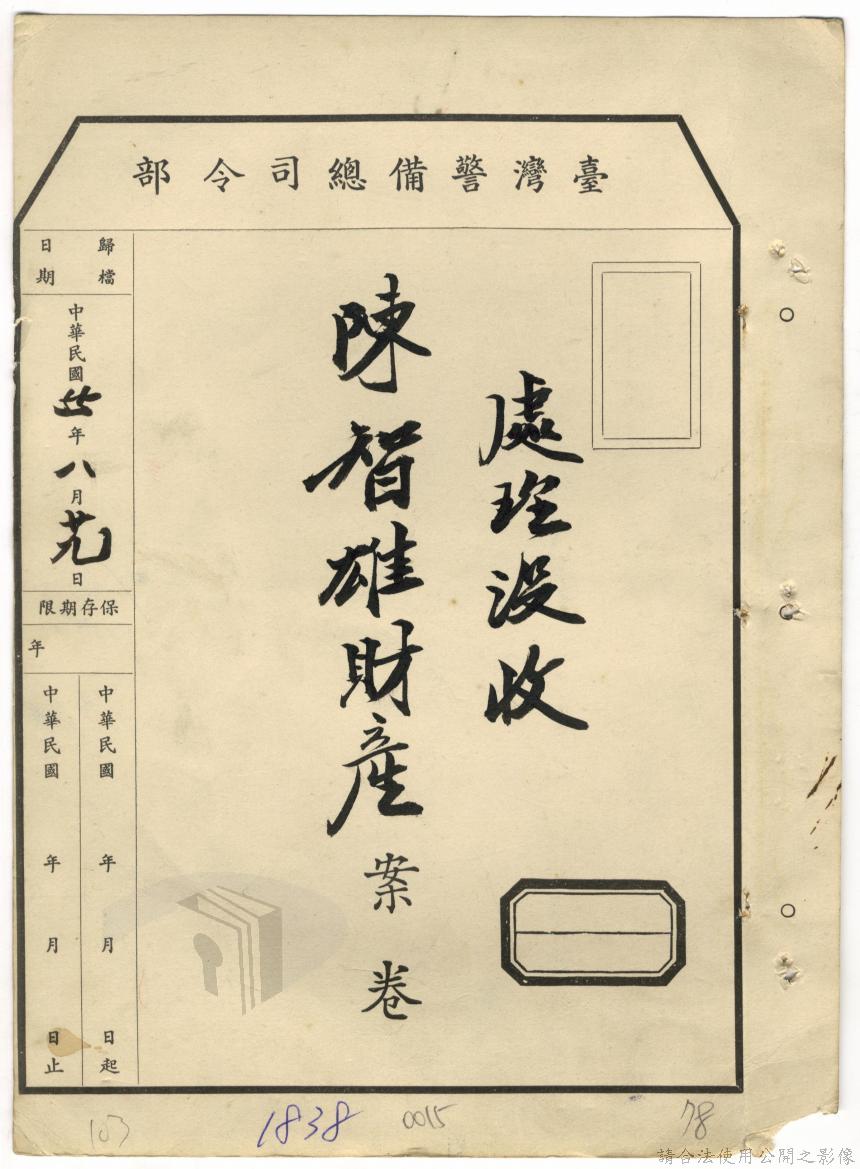 臺灣警備總司令部
處理沒收
陳智雄財產案卷
歸檔日期
中華民國 年八月廿九日
保存期限
年
中華民國 年 月 日起
中華民國 年 月 日止
103
1838
0015
78
請合法使用公開之影像